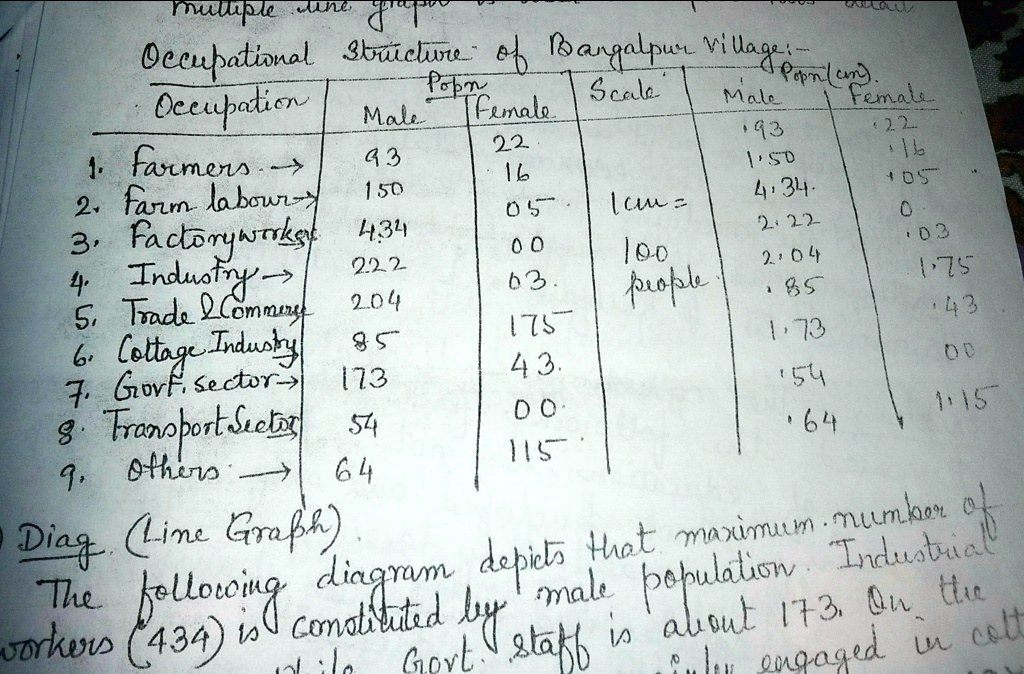 multiple line graph
Occupational Structure of Bangalpur Village:-
Occupation Popn Scale Popn (cm).
Male Female Male Female
1. Farmers → 93 22 .93 .22
2. Farm labour → 150 16 1.50 .16
3. Factory workers 434 05 1cm = 4.34 .05
4. Industry → 222 00 100 2.22 0
5. Trade & Commerce 204 03. people 2.04 .03
6. Cottage Industry 85 175 .85 1.75
7. Govt. sector → 173 43. 1.73 .43
8. Transport Sector 54 00 .54 00
9. Others → 64 115 .64 1.15
Diag. (Line Graph).
The following diagram depicts that maximum number of
workers (434) is constituted by male population. Industrial
Govt. staff is about 173. On the
engaged in